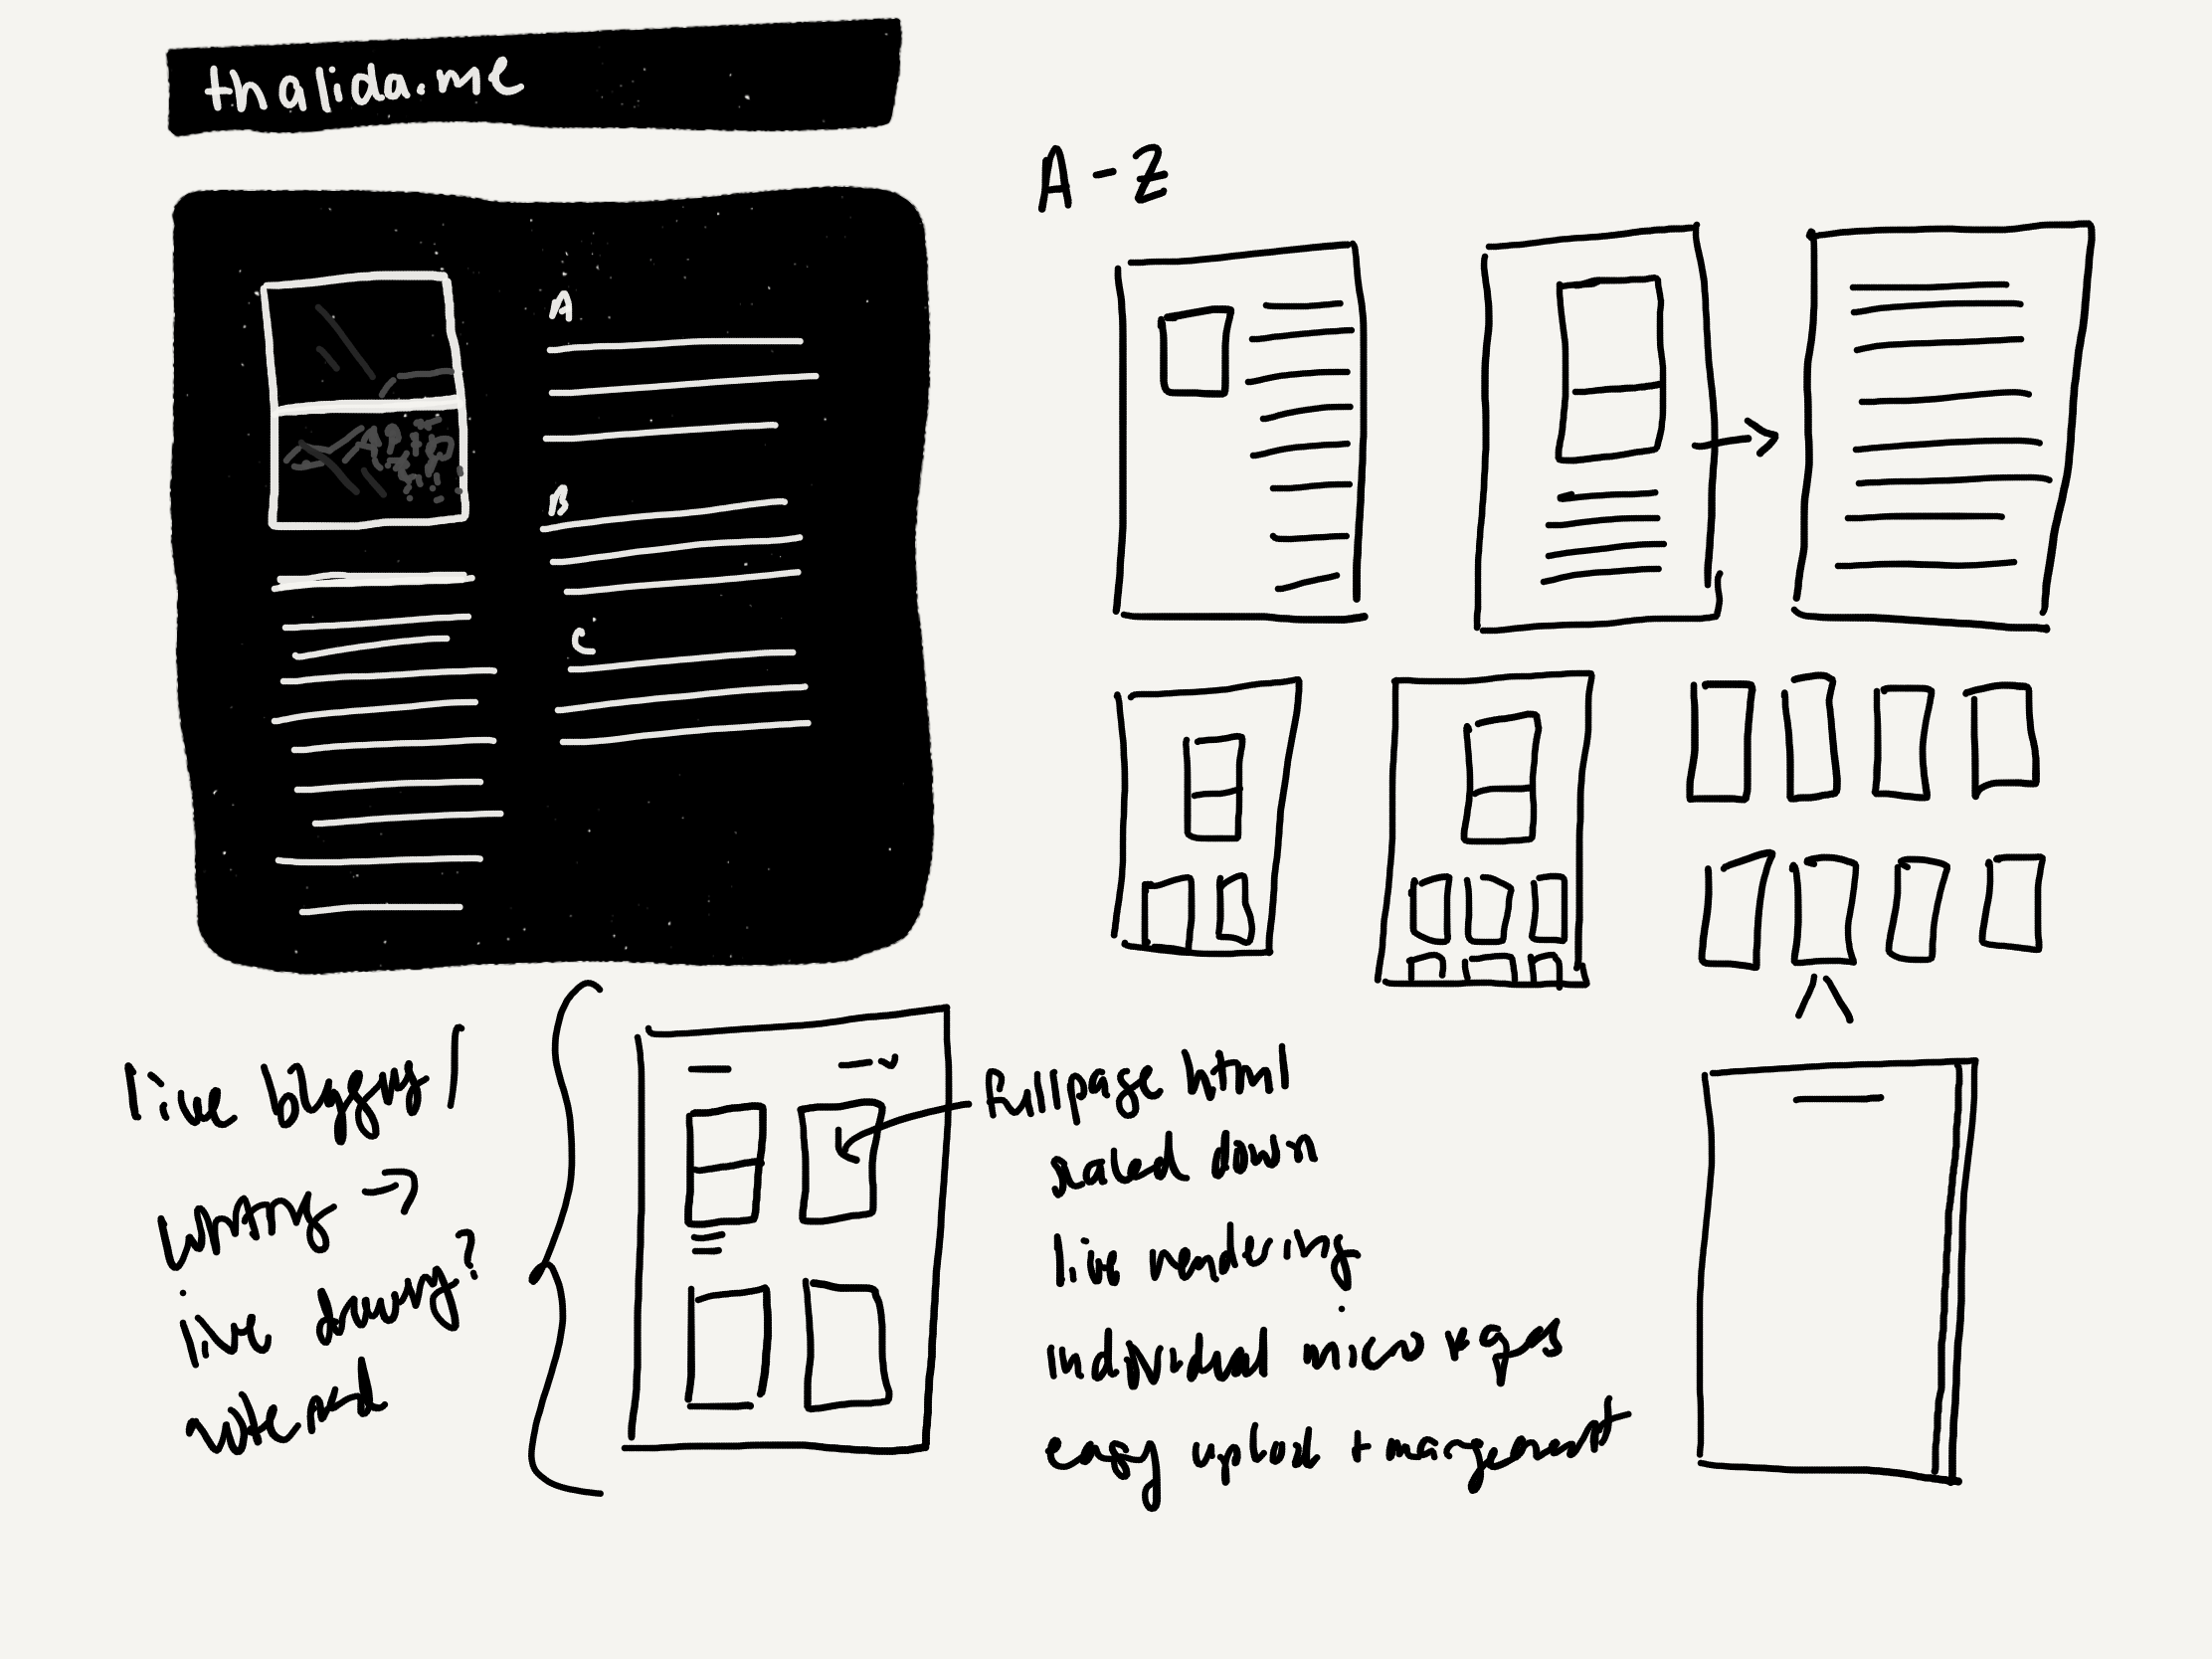 thalida.me
A
B
C
A-Z
live blogging/
writing →
live drawing?
notepad
full page html
scaled down
live rendering
individual micro pages
easy upload + management